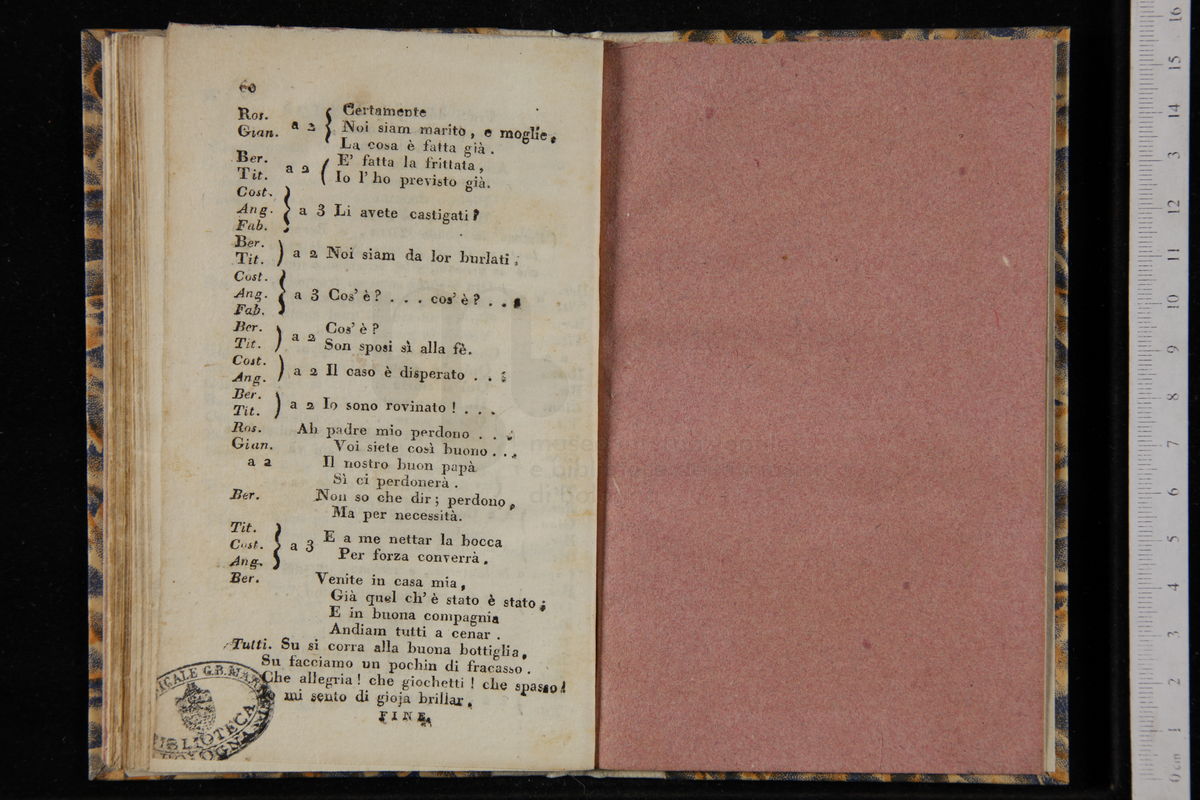 60
Ros. Certamente
Gian. a 2 Noi siam marito, e moglie,
La cosa è fatta già.
Ber. E' fatta la frittata,
Tit. a 2 Io l' ho previsto già.
Cost.
Ang. a 3 Li avete castigati?
Fab.
Ber.
Tit. a 2 Noi siam da lor burlati.
Cost.
Ang. a 3 Cos' è? . . . cos' è? . . .
Fab.
Ber. Cos' è?
Tit. a 2 Son sposi sì alla fè.
Cost.
Ang. a 2 Il caso è disperato . . .
Ber.
Tit. a 2 Io sono rovinato! . . .
Ros. Ah padre mio perdono . . .
Gian. Voi siete così buono . . .
a 2 Il nostro buon papà
Sì ci perdonerà.
Ber. Non so che dir; perdono,
Ma per necessità.
Tit.
Cost. a 3 E a me nettar la bocca
Ang. Per forza converrà.
Ber. Venite in casa mia,
Già quel ch' è stato è stato;
E in buona compagnia
Andiam tutti a cenar.
Tutti. Su si corra alla buona bottiglia,
Su facciamo un pochin di fracasso.
Che allegria! che giochetti! che spasso!
mi sento di gioja brillar.
FINE.
G.B. MARTINI
BIBLIOTECA
BOLOGNA
museo
di bo
0 cm 1 2 3 4 5 6 7 8 9 10 11 12 13 14 15 16